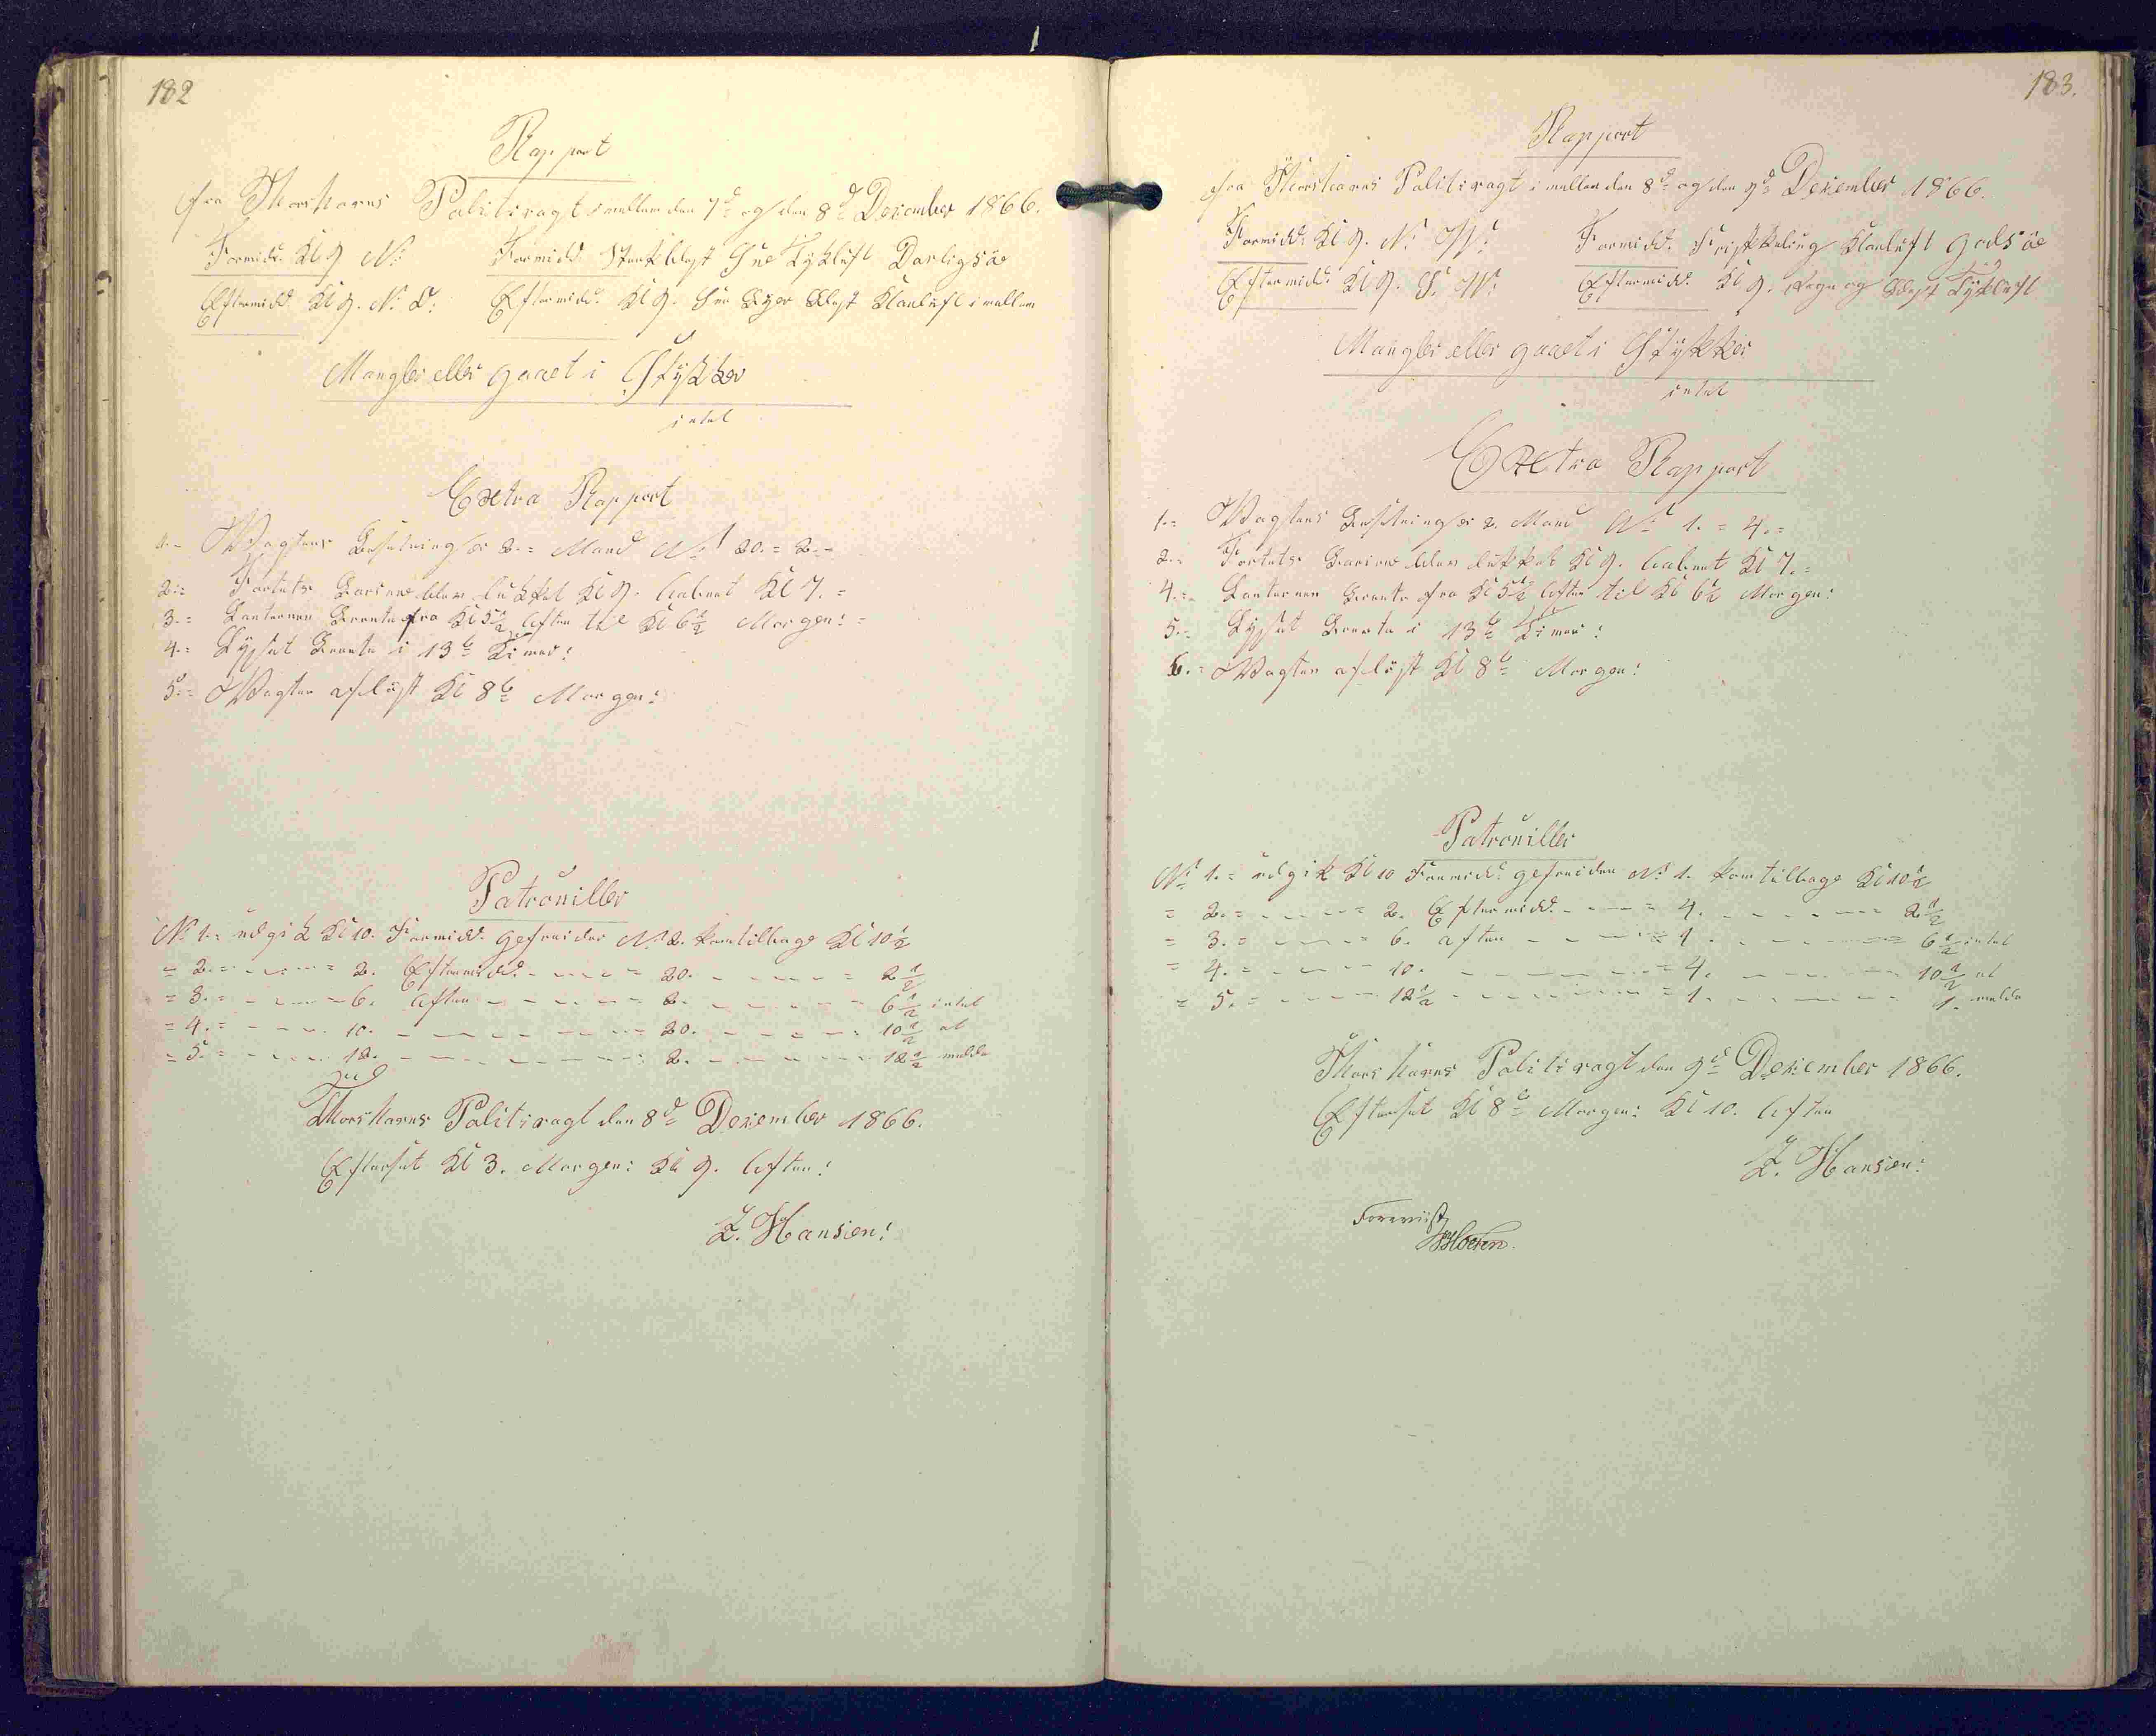 182
Rapport
fra Thorshavns Politivagt imellem den 7d og den 8d Dezember 1866.
Formidd. Kl 9 N: Formidd Stærk blæst Sne Tykluft Darligsöe
Eftermidd. Kl 9. N. O: Eftermidd. Kl 9. Sne Byer Blæst Klarluft imellem
Mangler eller gaaet i Stykker
intet
Extra Rapport
1.- Vagtens Besætning er 2.= Mand No 20.= 2.-
2.= Fortets Barriere blev lukket Kl 9. aabnet Kl 7.=
3.= Lanternen Brente fra Kl 5½ Aften til Kl 6½ Morgen:=
4.= Lyset Brente i 13 Timer:
5.= Vagten aflöst Kl 8 Morgen:
Patrouiller
No 1.= udgik Kl 10. Formidd. gefreider No 2. kom tilbage Kl 10½
= 2.= - - - = 2. Eftermidd. - - - = 20. - - - - = 2½
= 3.= - - - - 6. Aften - - - - 2. - - - - = 6½ intet
= 4.= - - - 10. - - - - - - 20. - - - - = 10½ at
= 5.= - - - 12. - - - - - - 2. - - - - 12½ melde
Thorshavns Politivagt den 8d Dezember 1866.
Efterset Kl 3. Morgen: Kl 9. Aften:
Z. Hansen:
183.
Rapport
fra Thorshavns Politivagt imellem den 8d og den 9d Dezember 1866.
Formidd. Kl 9. N. W: Formidd. Frisk kuling Klarluft godsöe
Eftermidd. Kl 9. S. W: Eftermidd. Kl 9. Regn og Blæst Tykluft
Mangler eller gaaet i Stykker
intet
Extra Rapport
1.= Vagtens Besetning er 2. Mand No 1.= 4.=
2.= Fortets Bariere blev lukket Kl 9. aabnet Kl 7.=
4.= Lanternen Brente fra Kl 5½ Aften til Kl 6½ Morgen:
5.= Lyset Brente i 13 Timer:
6.= Vagten aflöst Kl 8 Morgen:
Patrouiller
No 1.= udgik Kl 10 Formidd. gefreider No 1. kom tilbage Kl 10½
= 2.= - - - = 2. Eftermidd. - - - = 4. - - - - = 2½
= 3.= - - - = 6. aften - - - = 1. - - - - = 6½ intet
= 4.= - - - 10. - - - - - = 4. - - - - 10½ at
= 5.= - - - 12½ - - - - - = 1. - - - - 1. melde
Thorshavns Politivagt den 9d Dezember 1866.
Efterset Kl 8 Morgen: Kl 10. Aften
Z. Hansen:
Foreviist